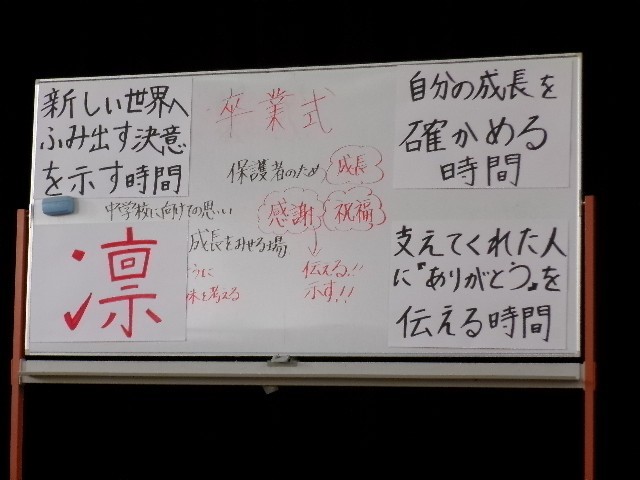 新しい世界へ
ふみ出す決意
を示す時間
卒業式
保護者のため
成長
中学校に向けての思い
感謝
祝福
成長をみせる場
うに
味を考える
伝える!!
示す!!
凛
自分の成長を
確かめる
時間
支えてくれた人
に『ありがとう』を
伝える時間